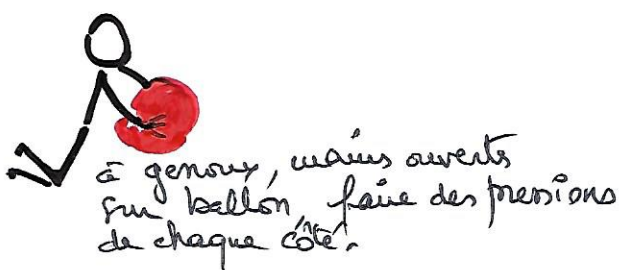 à genoux, mains ouverts
sur ballon, faire des pressions
de chaque côté.